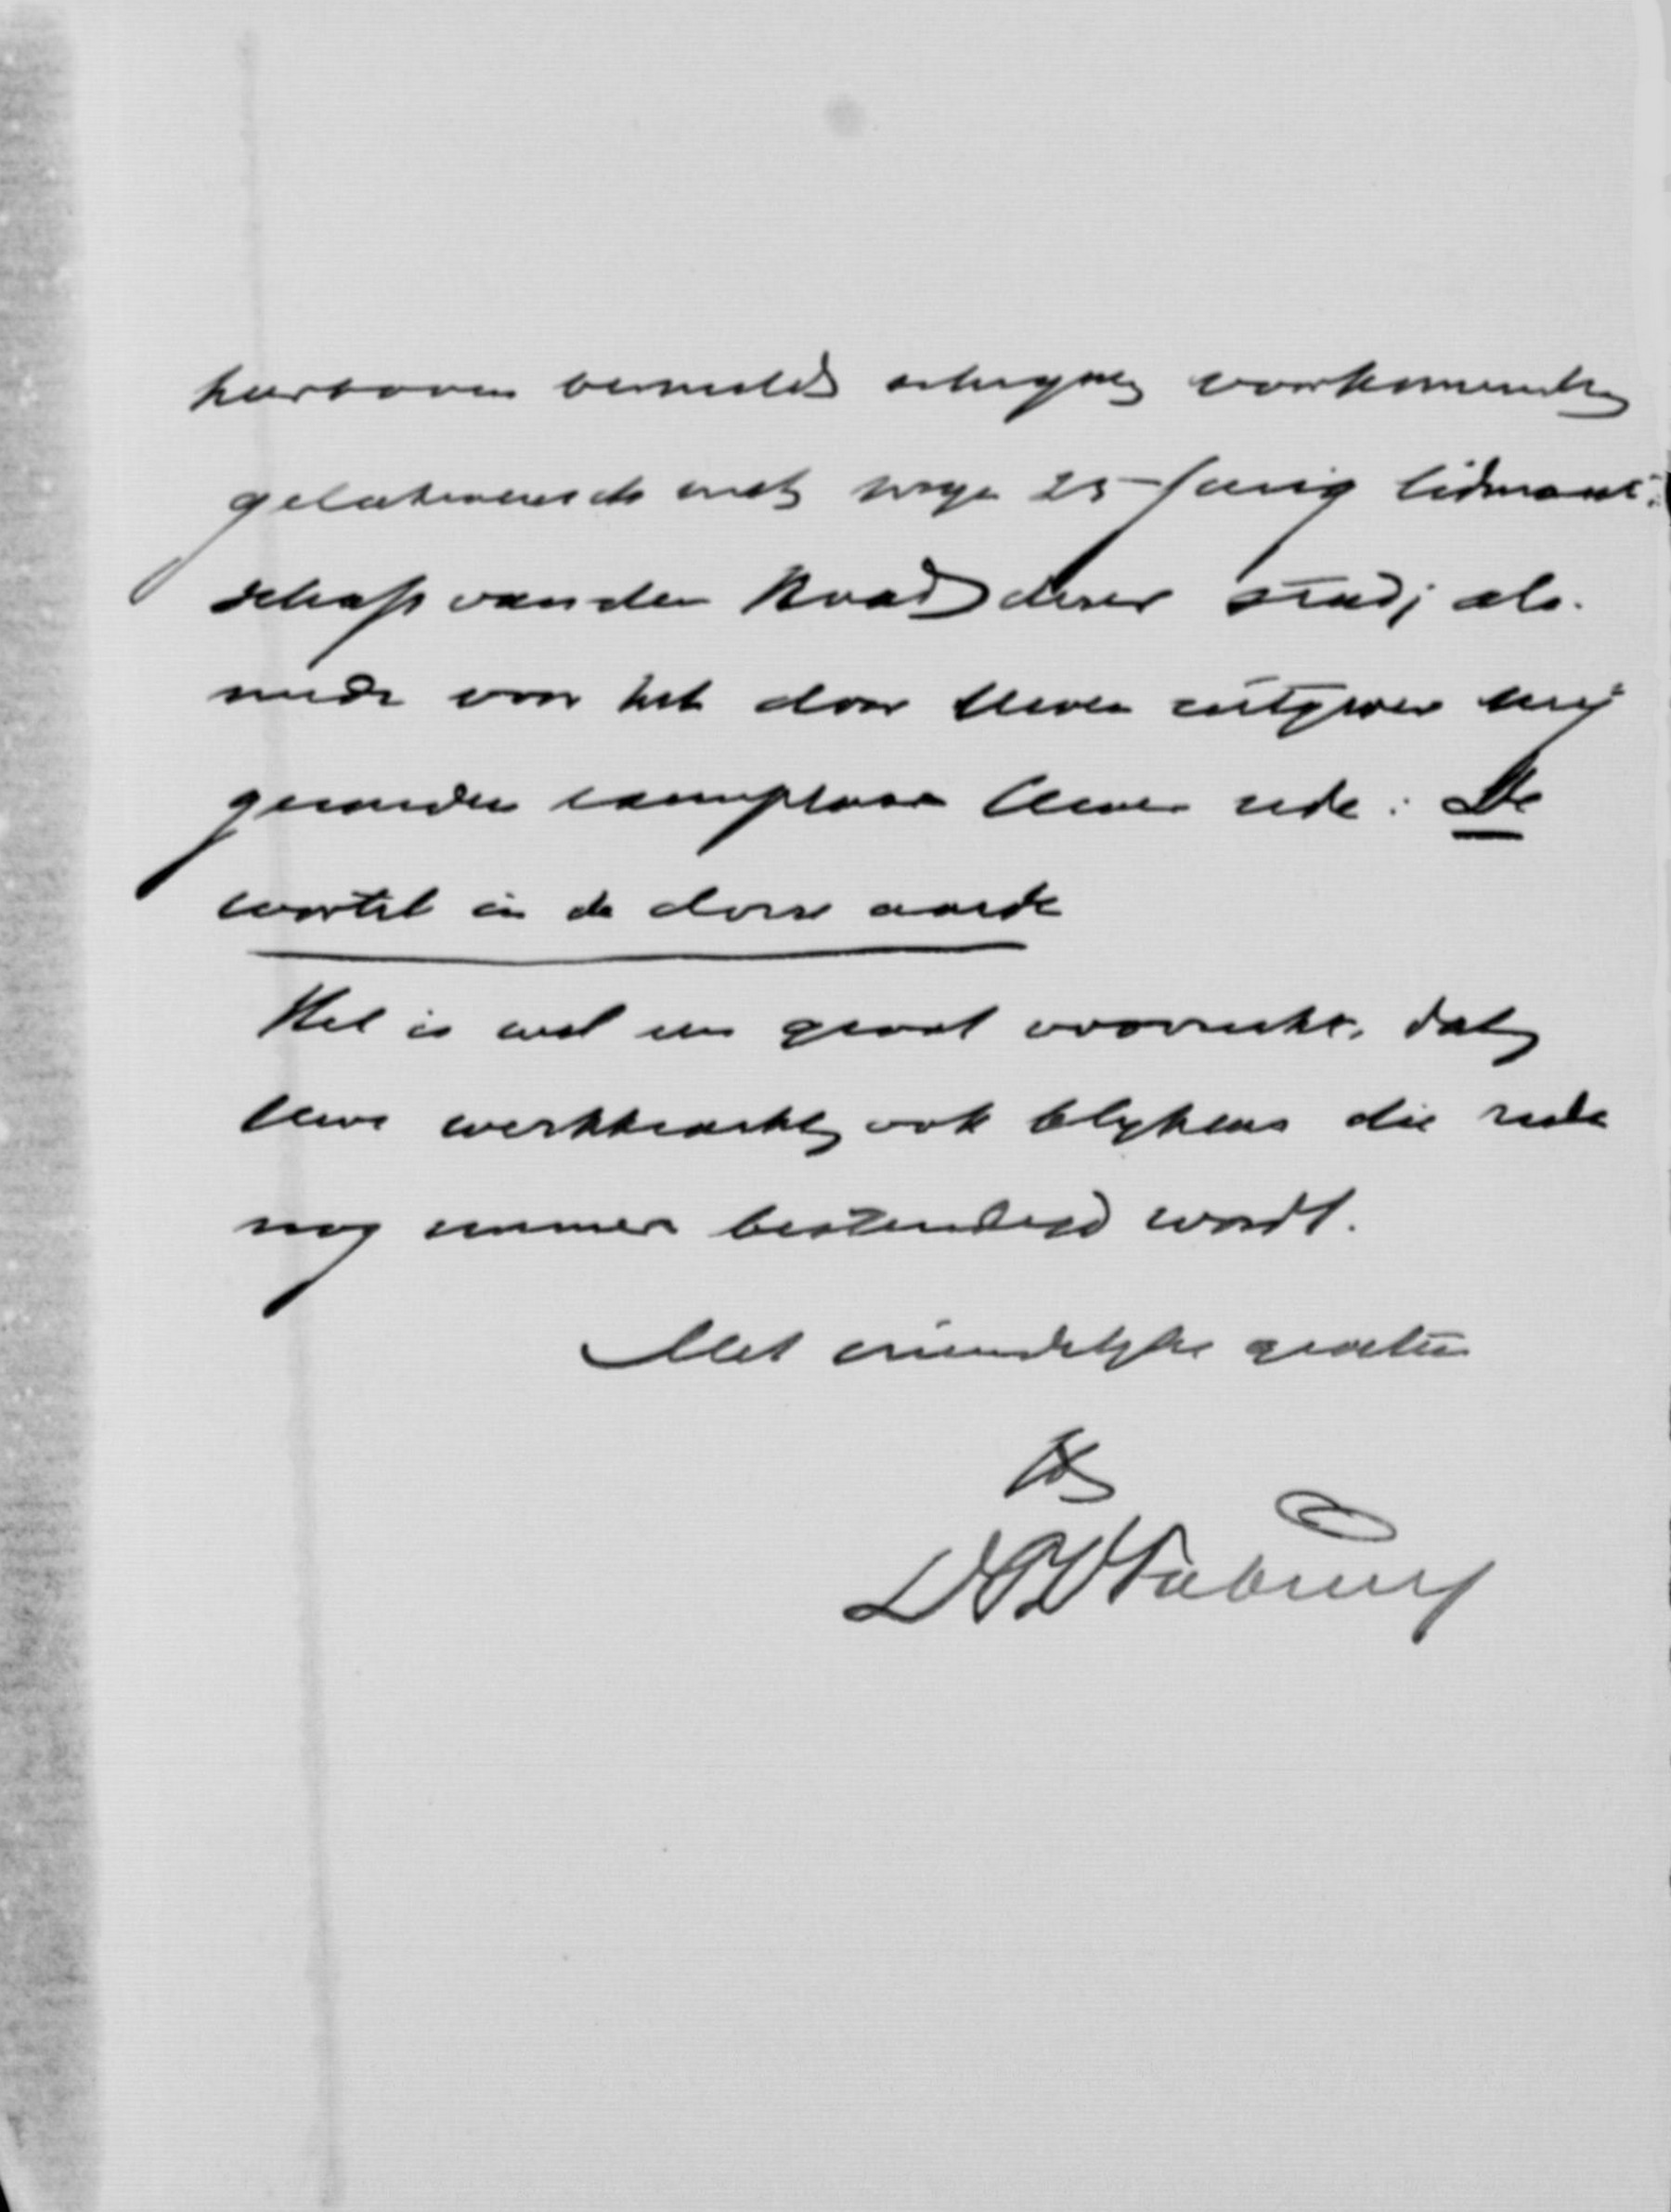 hierboven vermelde voorkomende
gelukwensch met mijn 25-jarig lidmaat-
schap van den Raad dezer stad; als-
mede voor het door Uwen uitgever mij
gezonden exemplaar Uwer rede: De
wortel in de dorre aarde
Het is wel een groot voorrecht, dat
Uwe werkkracht ook blijkens die rede
nog immer bestendigd wordt.
Met vriendelijke groeten